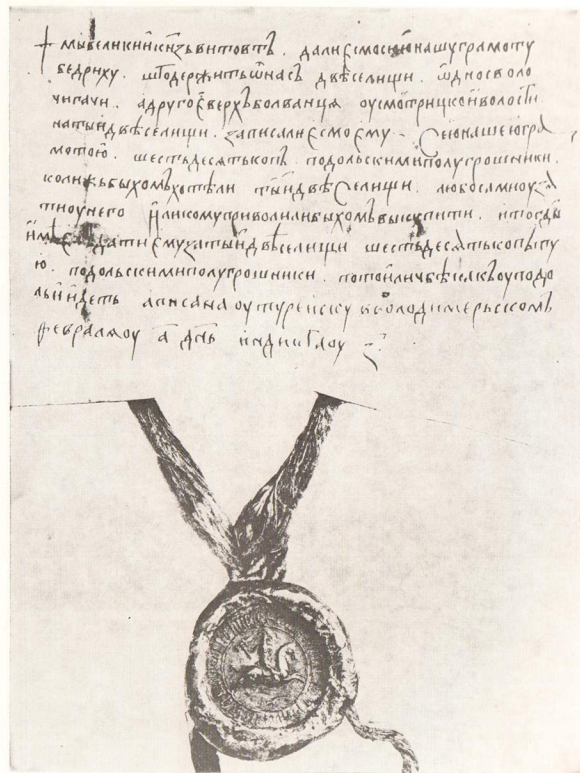 † мы великии кнѧзь витовтъ · дали єсмо сюю нашу грамоту
бедриху · што держить ѿ нас двѣ селищи · ѡдно своло
чигачи · а другоє верхъ болванцѧ оу смотрицкои волости
на тыи двѣ селищи · записали єсмо єму · сею нашею гра
мотою · шестьдесѧтъ копъ подольскими полугрошники ·
колижь быхомъ хотѣли тыи двѣ селищи · любо сами оузѧ
ти оу него или кому приволили быхомъ выкупити · и тогды
имѣєть дати єму за тыи двѣ селищи шестьдесѧтъ копъ ту
ю · подольскими полугрошники · по тои личбѣ какъ оу подо
льи идеть а писана оу турейску володимерьскомъ
февралѧ оу а днь индик г оу